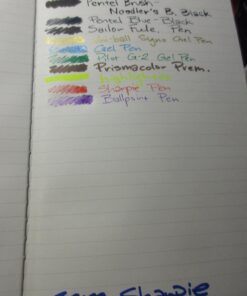 Pentel Brush -
Noodler's B. Black
Pentel Blue-Black
Sailor Fude. Pen
Uni-ball Signo Gel Pen
Gel Pen
Pilot G-2 Gel Pen
Prismacolor Prem.
highlighter
Sharpie Pen
Ballpoint Pen
Sharpie